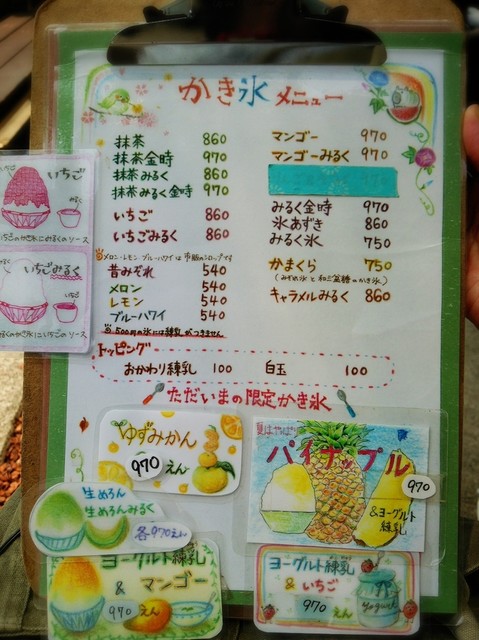 かき氷 メニュー
抹茶 860
抹茶金時 970
抹茶みるく 860
抹茶みるく金時 970
いちご 860
いちごみるく 860
メロン・レモン・ブルーハワイは市販のシロップです
昔みぞれ 540
メロン 540
レモン 540
ブルーハワイ 540
500円の氷には練乳がつきません
マンゴー 970
マンゴーみるく 970
みるく金時 970
氷あずき 860
みるく氷 750
かまくら 750
(みぞれ氷と和三盆糖のかき氷)
キャラメルみるく 860
トッピング
おかわり練乳 100 白玉 100
ただいまの限定かき氷
ゆずみかん
970えん
夏はやっぱり
パイナップル
970
&ヨーグルト
練乳
生めろん
生めろんみるく
各970えん
ヨーグルト練乳
& マンゴー
970 えん
ヨーグルト練乳
& いちご
970 えん
Yogurt
いちご
いちご
いちごのかき氷にみるくのソース
いちごみるく
いちご
みるくのかき氷にいちごのソース